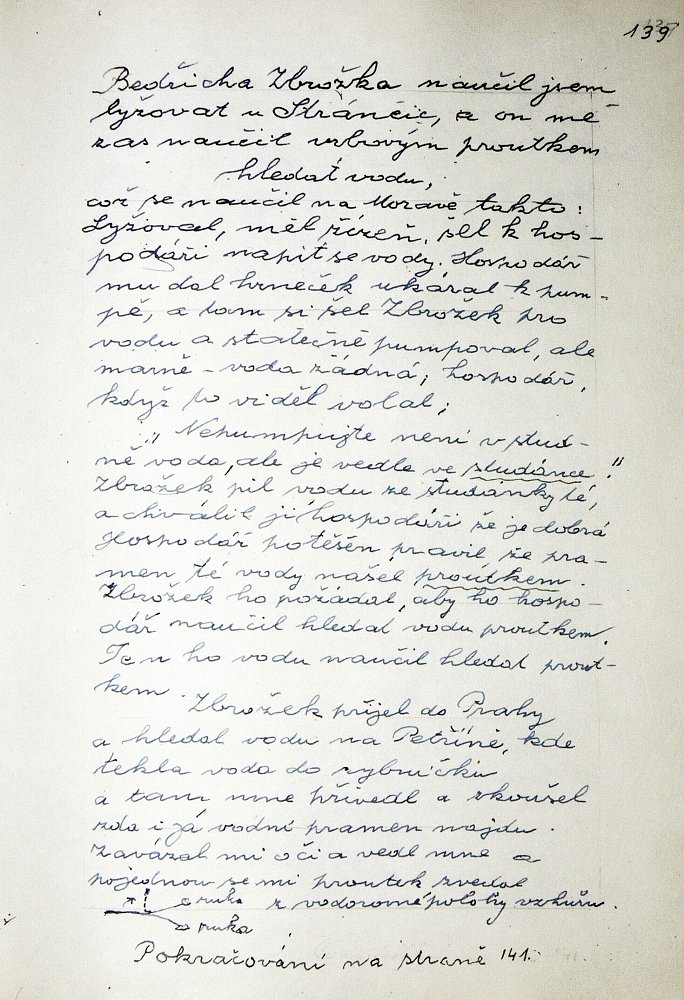 139
Bedřicha Zbrožka naučil jsem
lyžovat u Stránčic, a on mě
zas naučil vrbovým proutkem
hledat vodu,
což se naučil na Moravě takto:
Lyžoval, měl žízeň, šel k hos-
podáři napít se vody. Hospodář
mu dal hrneček ukázal k pum-
pě, a tam si šel Zbrožek pro
vodu a statečně pumpoval, ale
marně - voda žádná; hospodář,
když to viděl volal;
"Nepumpujte není v stud-
ně voda, ale je vedle ve studánce!"
Zbrožek pil vodu ze studánky té,
a chválil ji hospodáři že je dobrá
Hospodář potěšen pravil že pra-
men té vody našel proutkem.
Zbrožek ho požádal, aby ho hospo-
dář naučil hledat vodu proutkem.
Ten ho vodu naučil hledat prout-
kem.
Zbrožek přijel do Prahy
a hledal vodu na Petříně, kde
tekla voda do rybníčku
a tam mne přivedl a zkoušel
zda i já vodní pramen najdu.
Zavázal mi oči a vedl mne a
pojednou se mi proutek zvedal
ruka z vodorovné polohy vzhůru.
ruka
Pokračování na straně 141.